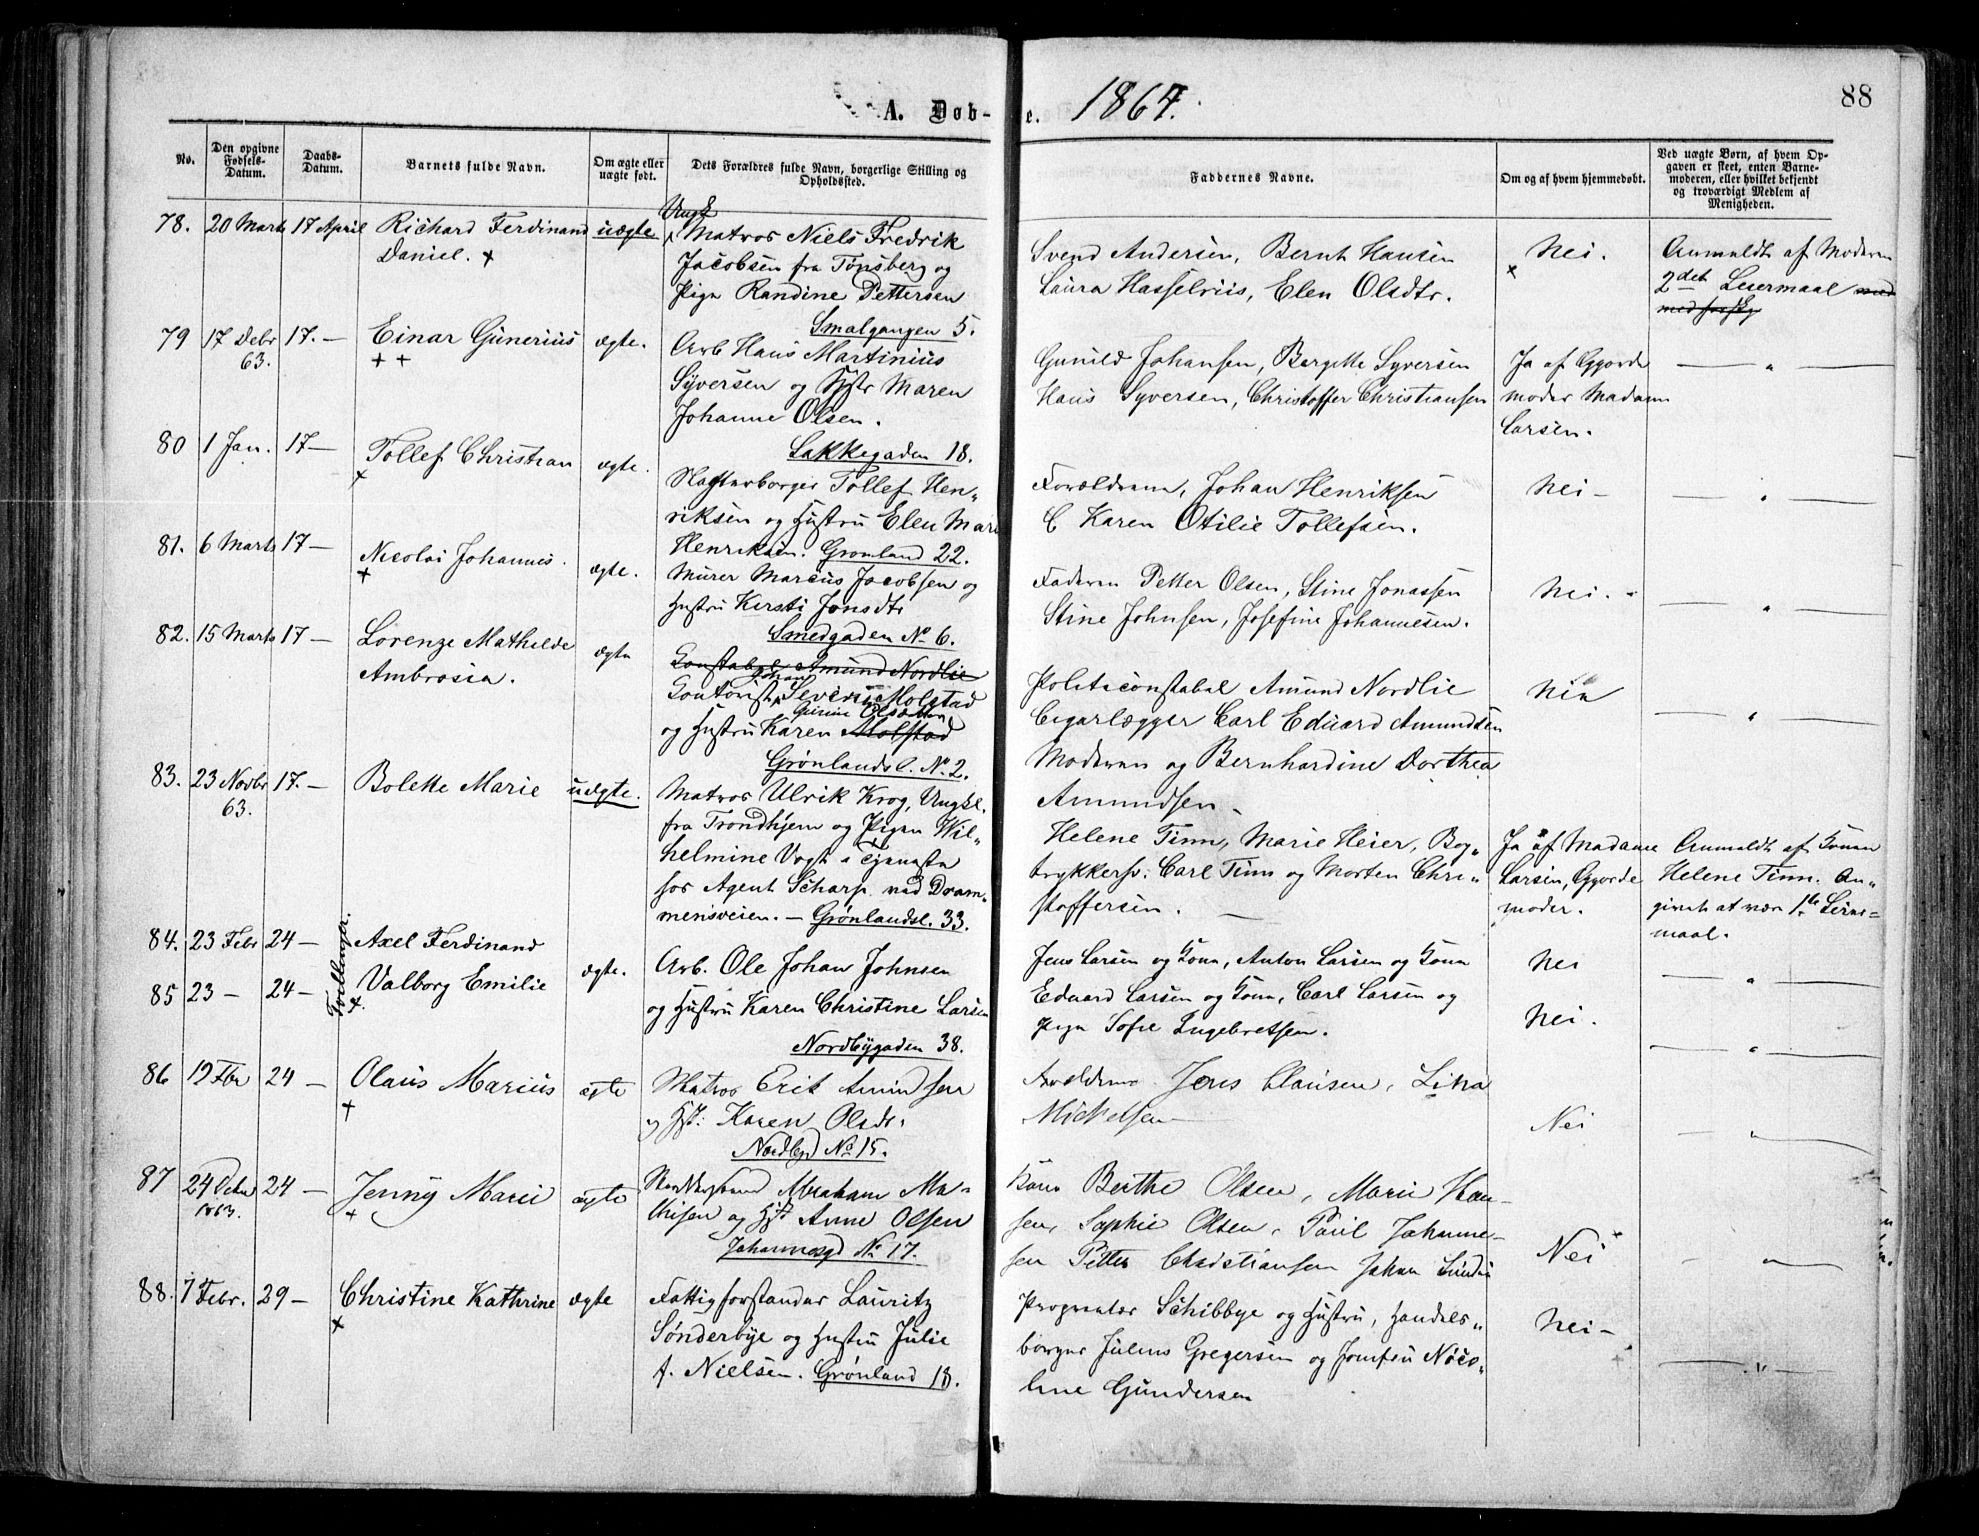 A. Døb-
e. 1864.
88
No.
Den opgivne
Fødsels-
Datum.
Daabs-
Datum.
Barnets fulde Navn.
Om ægte eller
uægte født.
Dets Forældres fulde Navn, borgerlige Stilling og
Opholdssted.
Faddernes Navne.
Om og af hvem hjemmedøbt.
Ved uægte Børn, af hvem Op-
gaven er skeet, enten Barne-
moderen, eller hvilket bekjendt
og troværdigt Medlem af
Menigheden.
78. 20 Marts 17 April Richard Ferdinand
Daniel. +
uægte
Ungk
Matros Niels Fredrik
Jacobsen fra Tønsberg og
Pige Randine Pettersen
Smalgangen 5.
Svend Andersen, Bernt Hansen
Laura Hasselriis, Elen Olsdtr.
Nei.
Anmeldt af Moderen
2det Leiermaal
79 17 Debr 17. — Einar Gunerius ægte.
63.
Arb Hans Martinius
Syversen og Hstr Maren
Johanne Olsen.
Lakkegaden 18.
Gunild Johansen, Bergitte Syversen
Hans Syversen, Christoffer Christiansen
Ja af Gjorde
moder Madam
Larsen.
80 1 Jan. 17 — Tollef Christian ægte.
Tollef Hen-
riksen og Hustru Elen Mari
Henriksen. Grønland 22.
Forældrene, Johan Henriksen
& Karen Otilie Tollefsen.
Nei —
81. 6 Marts 17 — Nicolai Johannes. ægte.
Murer Marcus Jacobsen og
Hustru Kersti Jonsdtr
Smedgaden No 6.
Faderen Petter Olsen, Stine Jonassen
Stine Johnsen, Josefine Johannesen.
Nei.
82. 15 Marts 17 — Lorenze Mathilde
Ambrosia.
ægte
Constabel Amund Nordlie
Johan
Contorist Severin Molstad
Gurine Olsdatter
og Hustru Karen Molstad
Grønlandsl. No 2.
Politiconstabel Amund Nordlie
Cigarlægger Carl Eduard Amundsen
Moderen og Bernhardine Dorthea
Amundsen
Nei
83. 23 Novbr 17. — Bolette Marie uægte.
63.
Matros Ulrik Krog, Ungkl.
fra Trondhjem og Pigen Wil-
helmine Vogt i Tjeneste
hos Agent Scharp ved Dram-
mensveien. — Grønlandsl. 33.
Helene Tinn, Marie Heier, Bog-
trykkersv: Carl Tinn og Morten Chri-
stoffersen.
Ja af Madame
Larsen, Gjorde
moder.
Anmeldt af Konen
Helene Tinn. An-
givet at være 1ste Leier-
maal.
84. 23 Febr 24 — Axel Ferdinand
85 23 — 24 — Valborg Emilie
Tvillinger.
ægte.
Arb. Ole Johan Johnsen
og Hustru Karen Christine Larsen
Nordbygaden 38.
Jens Larsen og Kone, Anton Larsen og Kone
Eduard Larsen og Kone, Carl Larsen og
Pige Sofie Ingebretsen.
Nei
Nei.
86 19 Fbr 24 — Olaus Marius ægte
Matros Erik Amundsen
og Hst: Karen Olsdr.
Nordbygd No 15.
Forældrene Jens Clausen, Lina
Mickelsen
Nei
87 24 Debr 24 — Jenny Marie ægte
1863.
Abraham Ma-
thisen og Hst Anne Olsen
Johannesgd No 17.
Kone Berthe Olsen, Marie Han-
sen, Sophie Olsen, Paul Johanne-
sen Petter Christiansen Johan
Nei
88. 7 Febr. 29 — Christine Kathrine ægte
Fattigforstander Lauritz
Sønderbye og Hustru Julie
f. Nielsen. Grønland 18.
Schibbye og Hustru, Handels-
borger Julius Gregersen og Jomfru Nico-
line Gundersen
Nei —